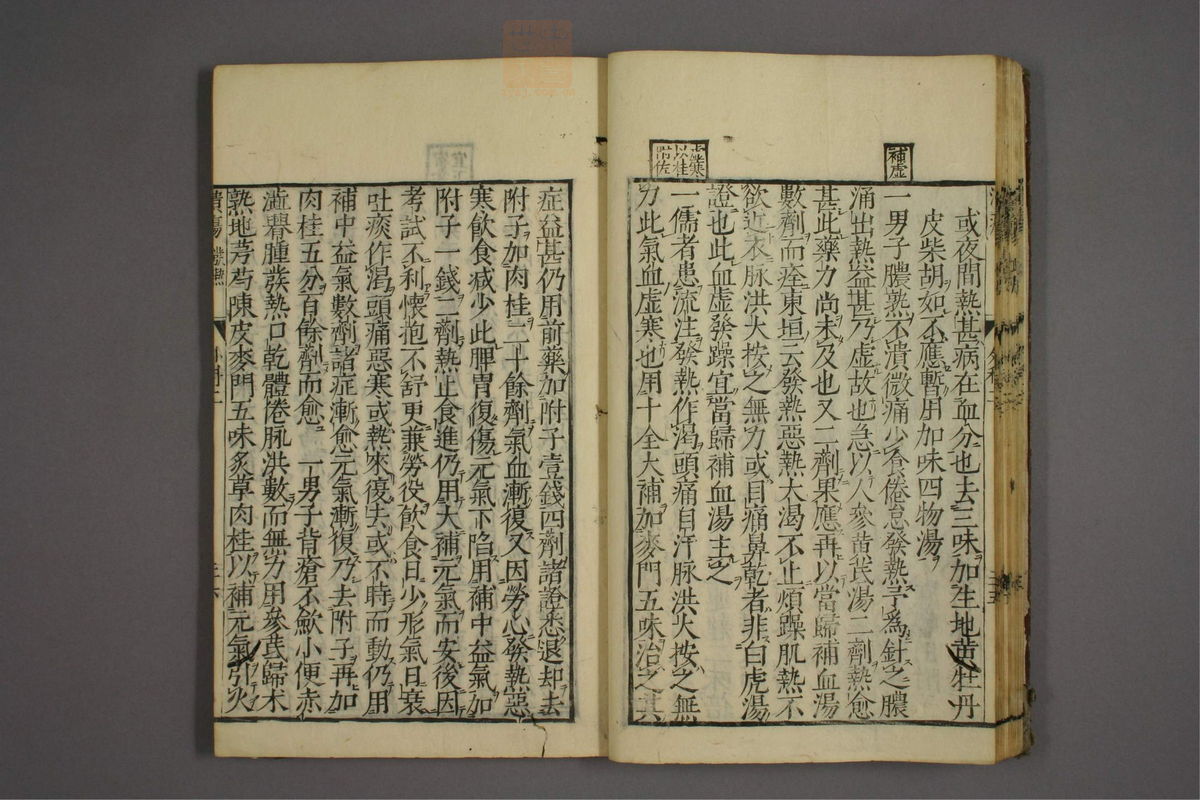 補虛
或夜間熱甚病在血分也去三味加生地黄牡丹
皮柴胡如不應暫用加味四物湯
一男子膿熟不潰微痛少食倦怠發熱予為針之膿
涌出熱益甚乃虛故也急以人參黃芪湯二劑熱愈
甚此藥力尚未及也又二劑果應再以當歸補血湯
數劑而痊東垣云發熱惡熱大渴不止煩躁肌熱不
欲近衣脉洪大按之無力或目痛鼻乾者非白虎湯
證也此血虛發躁宜當歸補血湯主之
虛寒
以桂
附佐
一儒者患流注發熱作渴頭痛自汗脉洪大按之無
力此氣血虛寒也用十全大補加麥門五味治之其
症益甚仍用前藥加附子壹錢四劑諸證悉退却去
附子加肉桂二十餘劑氣血漸復又因勞心發熱惡
寒飲食減少此脾胃復傷元氣下陷用補中益氣加
附子一錢二劑熱止食進仍用大補元氣而安後因
考試不利懷抱不舒更兼勞役飲食日少形氣日衰
吐痰作渴頭痛惡寒或熱來復去或不時而動仍用
補中益氣數劑諸症漸愈元氣漸復乃去附子再加
肉桂五分百餘劑而愈 一男子背瘡不歛小便赤
澁臀腫發熱口乾體倦脉洪數而無力用參芪歸木
熟地芎芍陳皮麥門五味炙草肉桂以補元氣引火
潰瘍